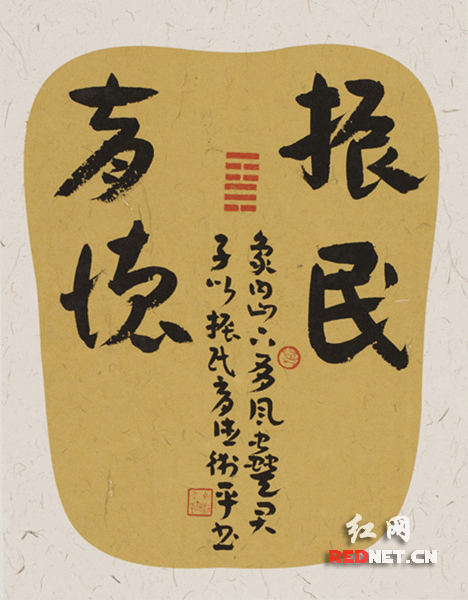 振民
育德
象曰山下有风蠱君
子以振民育德 平书
红网
REDNET.CN